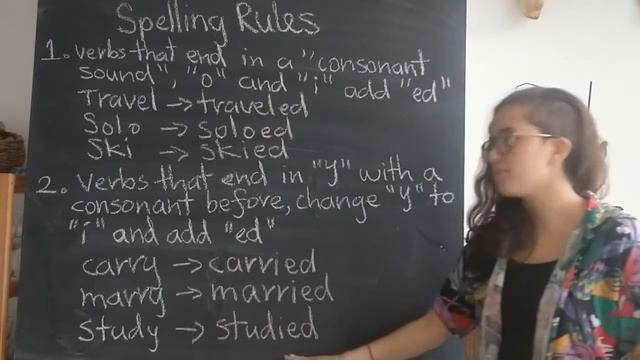 Spelling Rules
1. verbs that end in a "consonant
sound", "o" and "i" add "ed"
Travel → traveled
Solo → soloed
Ski → skied
2. Verbs that end in "y" with a
consonant before, change "y" to
"i" and add "ed"
carry → carried
marry → married
study → studied